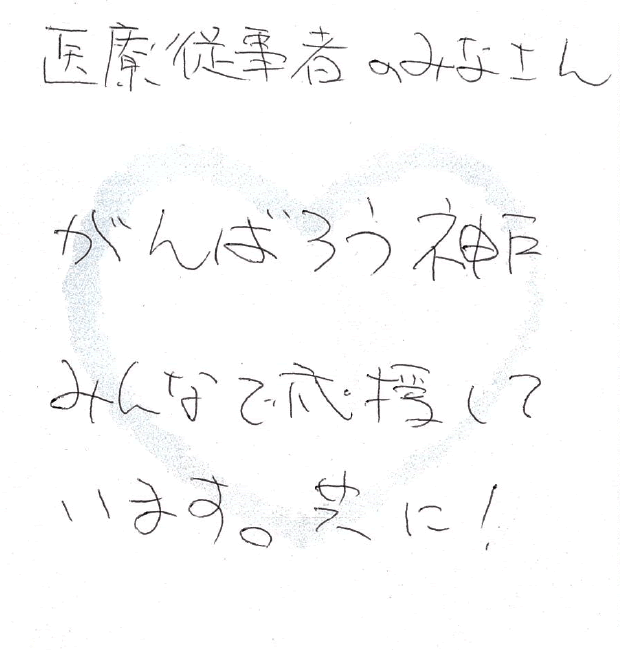 医療従事者のみなさん
がんばろう神戸
みんなで応援して
います。共に!